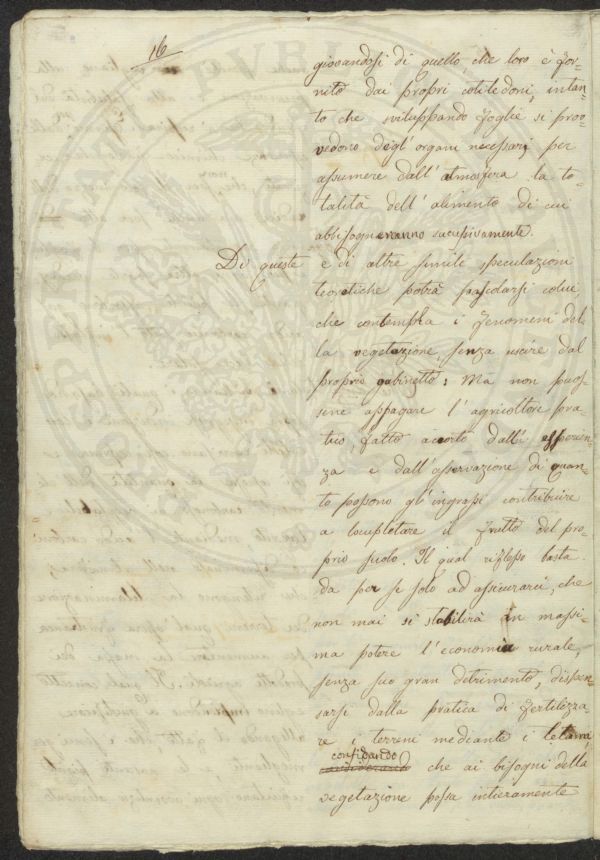 16
giovandosi di quello, che loro è for-
nito dai propri cotiledoni, intan-
to che sviluppando foglie si prov-
vedono degl' organi necessarj per
assumere dall' atmosfera la to-
talità dell' alimento di cui
abbisogneranno successivamente.
Di queste e di altre simili speculazioni
teoretiche potrà pascolarsi colui,
che contempla i fenomeni del-
la vegetazione, senza uscire dal
proprio gabinetto: Ma non puos-
sene appagare l' agricoltore pra-
tico, fatto accorto dall' esperien-
za e dall' osservazione di quan-
to possono gl' ingrassi contribuire
a locupletare il frutto del pro-
prio suolo. Il qual riflesso basta
da per se solo ad assicurarci, che
non mai si stabilirà in massi-
ma potere l' economia rurale,
senza suo gran detrimento, dispen-
sarsi dalla pratica di fertilizza-
re i terreni mediante i letami,
confidando
che ai bisogni della
vegetazione possa intieramente